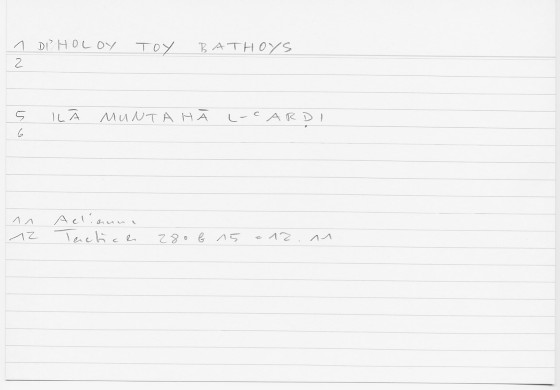 1 DI' HOLOY TOY BATHOYS
2
5 ILĀ MUNTAHĀ L-ᶜARḌI
6
11 Aelianus
12 Tactica 28. B 15 = 12. 11